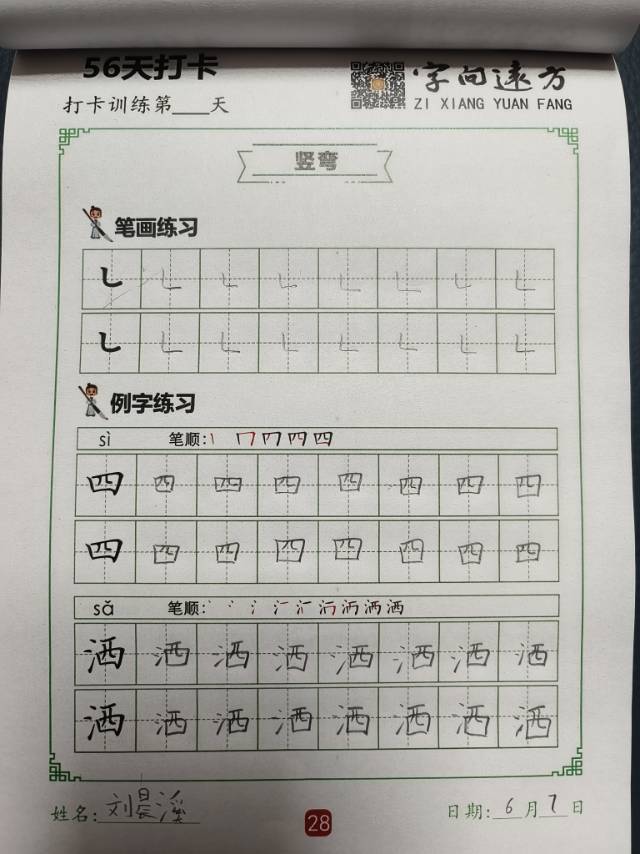 56天打卡
打卡训练第___天
字向远方
ZI XIANG YUAN FANG
竖弯
笔画练习
㇄ ㇄ ㇄ ㇄ ㇄ ㇄ ㇄ ㇄
㇄ ㇄ ㇄ ㇄ ㇄ ㇄ ㇄ ㇄
例字练习
sì 笔顺:
四 四 四 四 四 四 四 四
四 四 四 四 四 四 四 四
sǎ 笔顺:
洒 洒 洒 洒 洒 洒 洒 洒
洒 洒 洒 洒 洒 洒 洒 洒
姓名:刘晨溪
28
日期:6月7日